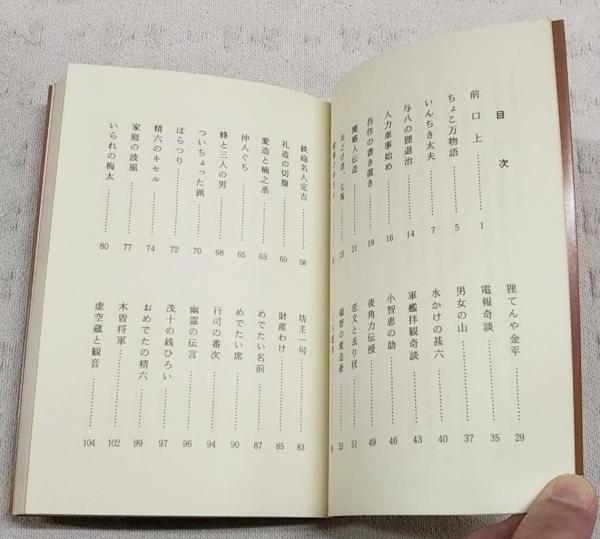 目次
前口上 1
ちょこ万物語 5
いんちき太夫 7
与八の狸退治 14
人力車事始め 16
吾作の書き置き 19
人伝造 21
おどけ者、七馬 23
狸てんや金平 29
電報奇談 35
男女の山 37
水かけの甚六 40
軍艦拝観奇談 43
小智恵の助 46
夜角力伝授 49
恋文と去り状 51
頓智の愛造爺 53
鉄砲名人定吉 58
礼造の切腹 60
愛造と楠之丞 63
仲人ぐち 65
蜂と三人の男 68
ついちょった 70
ばらつり 72
精六のキセル 74
家庭の波風 77
いられの梅太 80
坊主一句 83
財産わけ 85
めでたい名前 87
めでたい席 90
行司の番次 94
幽霊の伝言 96
茂十の銭ひろい 97
おめでたの精六 99
木曽将軍 102
虚空蔵と観音 104